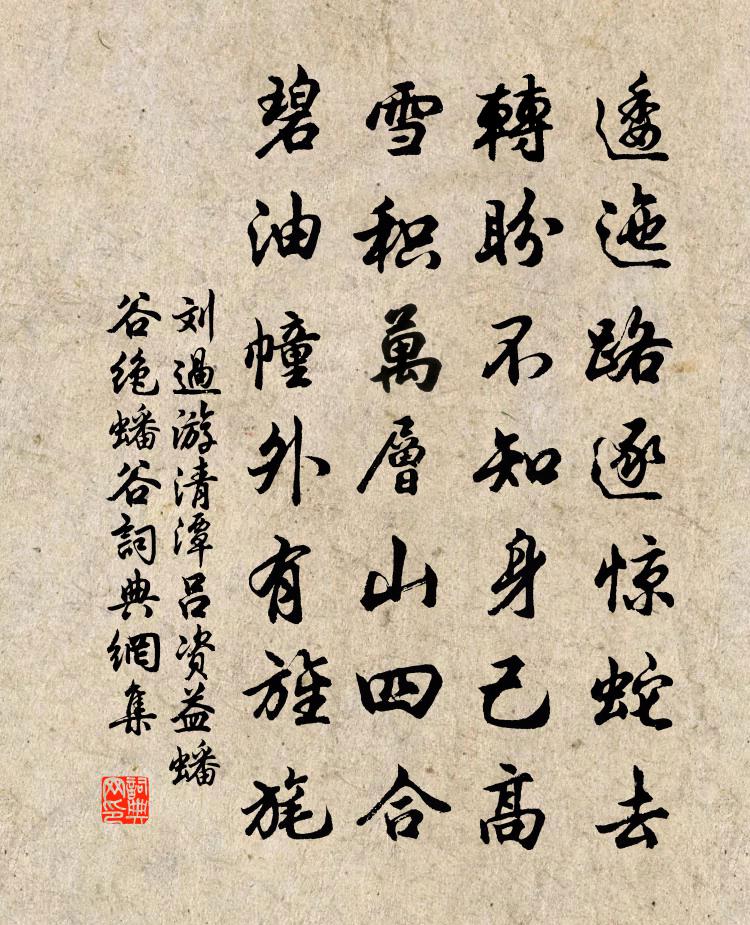 逶迤路逐惊蛇去
轉盼不知身已高
雪积萬層山四合
碧油幢外有旌旄
刘過游清潭吕资益蟠
谷绝蟠谷詞典網集
詞典
网印